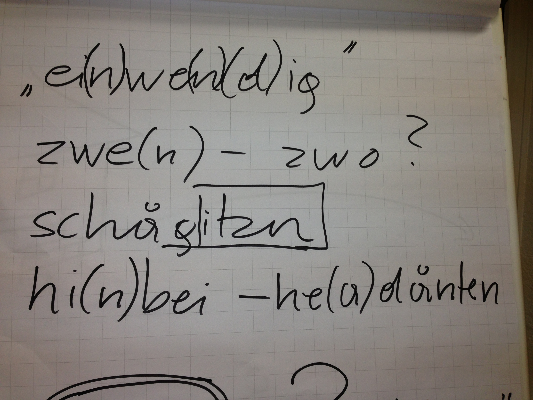 „ei(n)we(n)(d)ig"
zwe(n) – zwo?
schåglitzn
hi(n)bei – he(a)dånten